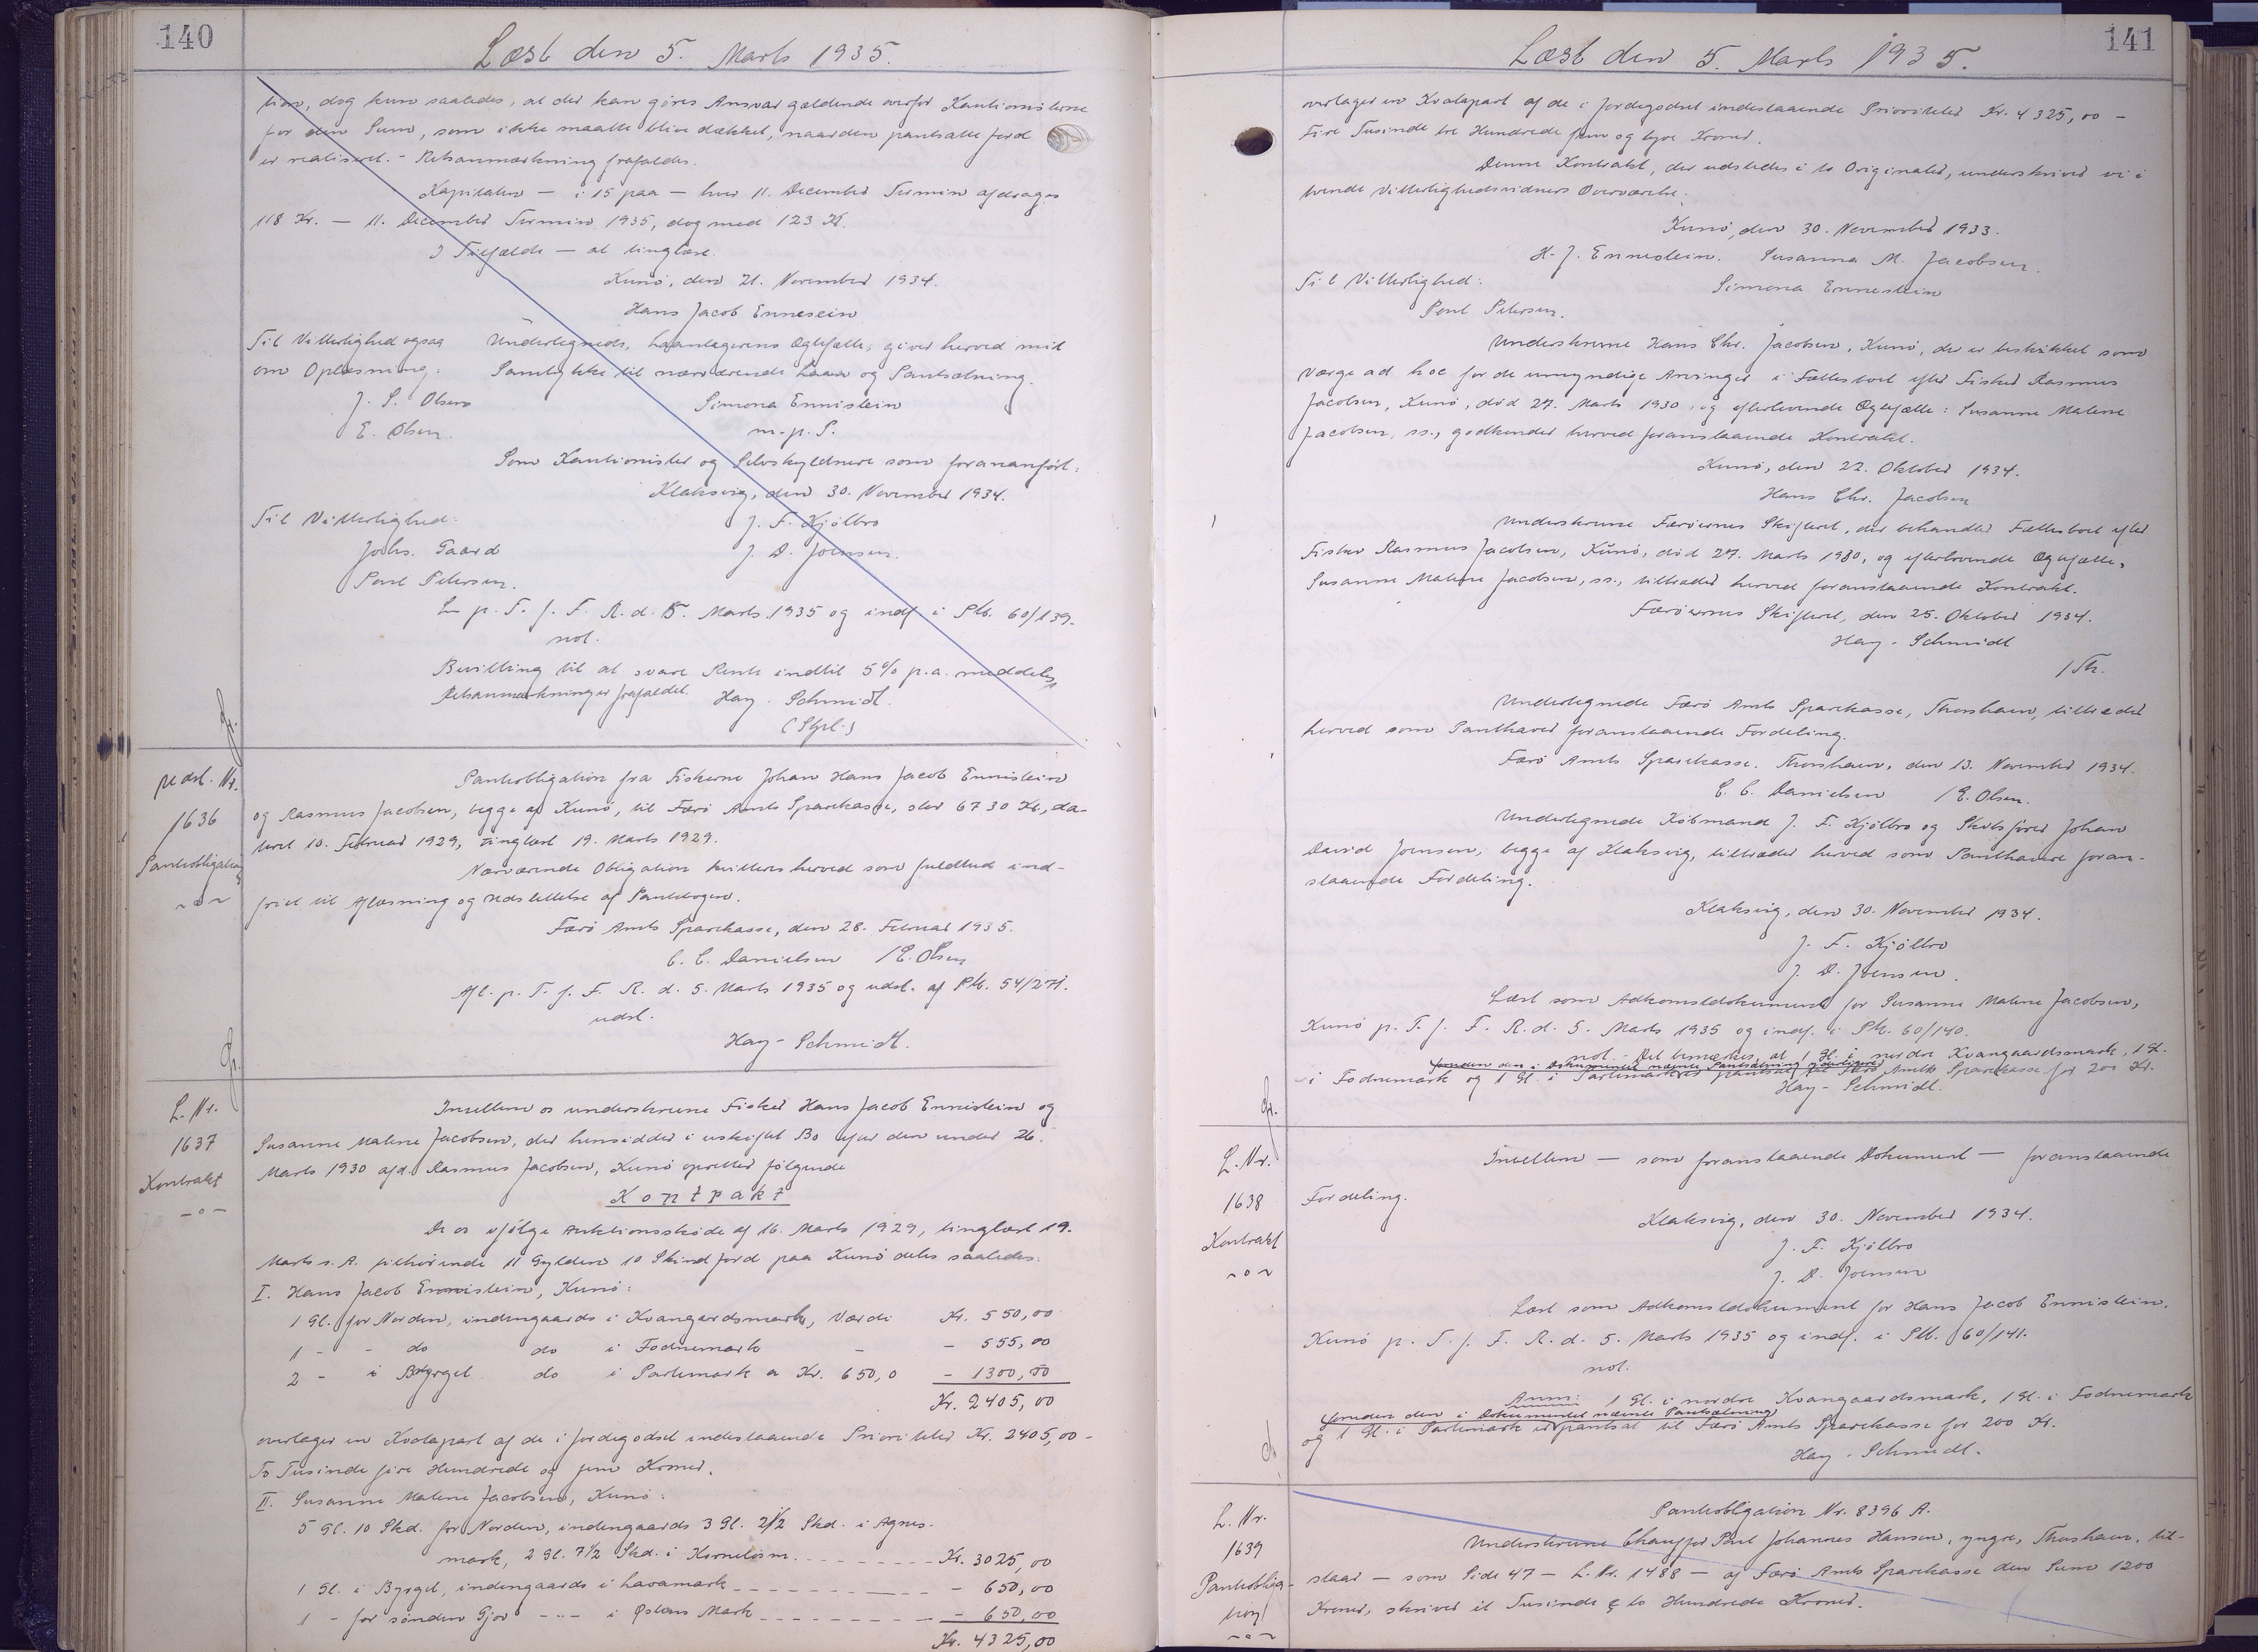 140
Læst den 5. Marts 1935.
tion, dog kun saaledes, at der kan gøres Ansvar gældende overfor Kautionisterne
for den Sum, som ikke maatte blive dækket, naar den pantsatte Jord
er realiseret. - Retsanmærkning frafaldes.
Kapitalen — i 15 paa — hver 11. December Termin afdrages
118 Kr. — 11. December Termin 1935, dog med 123 Kr.
I Tilfælde — at tinglæse.
Kunø, den 21. November 1934.
Hans Jacob Ennestein
Til Vitterlighed ogsaa Undertegnede, Laantagerens Ægtefælle, giver herved mit
om Oplæsning: Samtykke til nærværende Laan og Pantsætning.
J. S. Olsen Simona Ennistein
E. Olsen. m. p. S.
Som Kautionister og Selvskyldnere som foranført:
Klaksvig, den 30. November 1934.
Til Vitterlighed: J. F. Kjølbro
Johs. Taard J. D. Joensen.
Poul Petersen.
L. p. T. f. F. R. d. 5. Marts 1935 og indf. i Ptb. 60/139.
not.
Bevilling til at svare Rente indtil 5% p.a. meddeles
Retsanmærkninger frafaldet. Hay-Schmidt.
(Stpl.)
udsl. Nr.
1636
Pantobligation
~o~
Pantobligation fra Fiskerne Johan Hans Jacob Ennistein
og Rasmus Jacobsen, begge af Kunø, til Færø Amts Sparekasse, stor 6730 Kr., da-
teret 10. Februar 1929, tinglæst 19. Marts 1929.
Nærværende Obligation kvitteres herved som fuldtud ind-
friet til Aflæsning og Udslettelse af Pantebogen.
Færø Amts Sparekasse, den 28. Februar 1935.
C. C. Danielsen /E. Olsen
Afl. p. T. f. F. R. d. 5. Marts 1935 og udsl. af Ptb. 54/271.
udsl.
Hay-Schmidt.
L. Nr.
1637
Kontrakt
-o-
Imellem os underskrevne Fisker Hans Jacob Ennistein og
Susanne Malene Jacobsen, der hensidder i uskiftet Bo efter den under 26.
Marts 1930 afd. Rasmus Jacobsen, Kunø oprettes følgende
Kontrakt
De os ifølge Auktionsskøde af 16. Marts 1929, tinglæst 19.
Marts s. A. tilhørende 11 Gylden 10 Skind Jord paa Kunø deles saaledes:
I. Hans Jacob Ennistein, Kunø:
1 Gl. for Norden, indengaards i Kvangaardsmark, Værdi Kr. 550,00
1 - - do do i Fodnemark - - 555,00
2 - i Byrgel do i Partimark a Kr. 650,0 - 1300,00
Kr. 2405,00
overtager en Kvotapart af de i Jordegodset indestaaende Prioriteter Kr. 2405,00 -
To Tusinde fire Hundrede og fem Kroner.
II. Susanne Malene Jacobsen, Kunø:
5 Gl. 10 Skd. for Norden, indengaards 3 Gl. 2½ Skd. i Agnes-
mark, 2 Gl. 7½ Skd. i Kornelism. - - - - - - - Kr. 3025,00
1 Gl. i Byrgel, indengaards i Lavamark - - - - - - 650,00
1 - for sønden Gjov - " - i Østans Mark - - - - - - 650,00
Kr. 4325,00
141
Læst den 5. Marts 1935.
overtager en Kvotapart af de i Jordegodset indestaaende Prioriteter Kr. 4325,00 -
Fire Tusinde tre Hundrede fem og tyve Kroner.
Denne Kontrakt, der udstedes i to Originaler, underskriver vi i
tvende Vitterlighedsvidners Overværelse.
Kunø, den 30. November 1933.
H. J. Ennestein. Susanna M. Jacobsen.
Til Vitterlighed: Simona Ennestein
Poul Petersen.
Underskrevne Hans Chr. Jacobsen, Kunø, der er beskikket som
Værge ad hoc for de umyndige Arvinger i Fællesboet efter Fisker Rasmus
Jacobsen, Kunø, død 27. Marts 1930, og efterlevende Ægtefælle: Susanne Malene
Jacobsen, ss., godkender herved foranstaaende Kontrakt.
Kunø, den 22. Oktober 1934.
Hans Chr. Jacobsen
Underskrevne Færøernes Skifteret, der behandler Fællesboet efter
Fisker Rasmus Jacobsen, Kunø, død 27. Marts 1930, og efterlevende Ægtefælle,
Susanne Malene Jacobsen, ss., tiltræder herved foranstaaende Kontrakt.
Færøernes Skifteret, den 25. Oktober 1934.
Hay-Schmidt
Undertegnede Færø Amts Sparekasse, Thorshavn, tiltræder
herved som Panthaver foranstaaende Fordeling.
Færø Amts Sparekasse. Thorshavn, den 13. November 1934.
C. C. Danielsen /E. Olsen.
Undertegnede Købmand J. F. Kjølbro og Skibsfører Johan
David Joensen, begge af Klaksvig, tiltræder herved som Panthavere foran-
staaende Fordeling.
Klaksvig, den 30. November 1934.
J. F. Kjølbro
J. D. Joensen.
Læst som Adkomstdokument for Susanne Malene Jacobsen,
Kunø p. T. f. F. R. d. 5. Marts 1935 og indf. i Ptb. 60/140.
not. - Det bemærkes, at 1 Gl. i nordre Kvangaardsmark, 1 Gl.
foruden den i Dokumentet nævnte Pantsætning yderligere
i Fodnemark og 1 Gl. i Partimark er pantsat til Færø Amts Sparekasse for 200 Kr.
Hay-Schmidt.
L. Nr.
1638
Kontrakt
~o~
Imellem — som foranstaaende Dokument — foranstaaende
Fordeling.
Klaksvig, den 30. November 1934.
J. F. Kjølbro
J. D. Joensen
Læst som Adkomstdokument for Hans Jacob Ennistein,
Kunø p. T. f. F. R. d. 5. Marts 1935 og indf. i Ptb. 60/141.
not.
Anm: 1 Gl. i nordre Kvangaardsmark, 1 Gl. i Fodnemark
foruden den i Dokumentet nævnte Pantsætning
og 1 Gl. i Partimark er pantsat til Færø Amts Sparekasse for 200 Kr.
Hay-Schmidt.
L. Nr.
1639
Pantobliga-
tion
~o~
Pantobligation Nr. 8396 A.
Underskrevne Chauffør Poul Johannes Hansen, yngre, Thorshavn, til-
staar — som Side 47 — L. Nr. 1488 — af Færø Amts Sparekasse den Sum 1200
Kroner, skriver et Tusinde & to Hundrede Kroner.